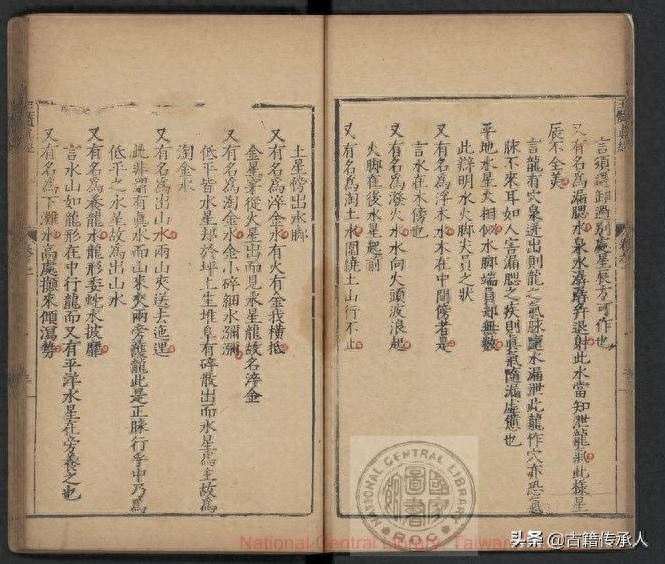 言須還卸過別處星辰方可作也
又有名為漏腮水泉水滴瀝并退射此水當知泄龍氣此樣星
辰不全美
言龍有穴泉迸出則龍之氣脉隨水漏泄此龍作穴亦恐氣
脉不來耳如人害漏腮之疾則真氣隨漏虛憊也
平地水星火相似水脚端員却無數
此辯明水火脚尖員之狀
又有名為浮木水木在中間傍者是
言水在木傍也
又有名為潑火水水向火頭波浪起
火脚在後水星起前
又有名為淘土水圍繞土山行不止
土星傍出水脚
又有名為淬金水有火有金我橫抵
金星穿從火星出而見水星龍故名淬金
又有名為淘金水金小碎細水瀰瀰
低平皆水星却於坪上生堆阜有碎散出而水星為主故為
淘金水
又有名為出山水兩山夾送去迤邐
此非謂有真水而山來夾兩旁護龍此是正脉行乎中乃為
低平之水星故為出山水
又有名為養龍水龍形委蛇水披靡
言水山如龍形在中行龍而又有平洋水星在旁養之也
又有名為下灘水高處攧來傾瀉勢
NATIONAL CENTRAL LIBRARY
國家圖書館
R.O.C
National Central Library, Taiwan
头条 @古籍传承人